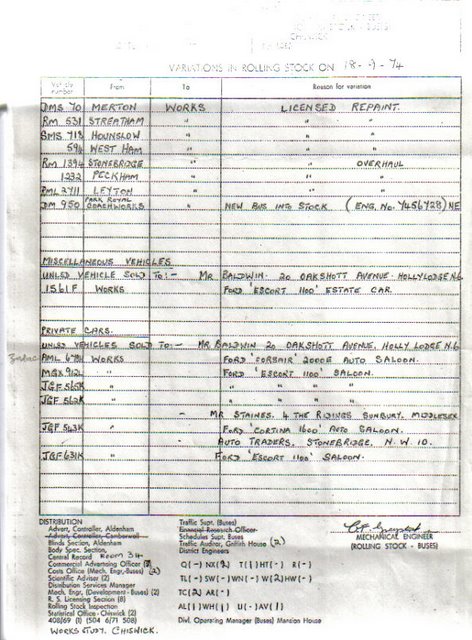 CHISWICK
VARIATIONS IN ROLLING STOCK ON 18-9-74
Vehicle number From To Reason for variation
DMS 70 MERTON WORKS LICENSED REPAINT.
RM 531 STREATHAM " " " "
SMS 718 HOUNSLOW " " " "
594 WEST HAM " " " "
RM 1394 STONEBRIDGE " " OVERHAUL
1232 PECKHAM " " "
RML 2711 LEYTON " " " "
DM 950 PARK ROYAL COACHWORKS " NEW BUS INTO STOCK (ENG. No. Y456Y28) NE
MISCELLANEOUS VEHICLES
UNLSD VEHICLE SOLD TO:- MR BALDWIN. 20 OAKSHOTT AVENUE. HOLLYLODGE N.6
1561F WORKS FORD 'ESCORT 1100' ESTATE CAR.
PRIVATE CARS.
UNLSD VEHICLES SOLD TO:- MR BALDWIN 20 OAKSHOTT AVENUE, HOLLY LODGE N.6
AML 678H WORKS FORD 'CORSAIR' 2000E AUTO SALOON.
MGX 912L " FORD 'ESCORT 1100' SALOON.
JGF 565K " " " " "
JGF 562K " " " " "
- MR STAINES. 4 THE RIDINGS SUNBURY. MIDDLESEX
JGF 563K " FORD 'CORTINA 1600' AUTO SALOON.
- AUTO TRADERS, STONEBRIDGE, N.W.10.
JGF 631K " FORD 'ESCORT 1100' SALOON.
DISTRIBUTION
Advert, Controller, Aldenham
Advert, Controller, Camberwell
Blinds Section, Aldenham
Body Spec. Section,
Central Record Room 34
Commercial Advertising Officer (2)
Costs Office (Mech. Engr-Buses) (2)
Scientific Adviser (2)
Distribution Services Manager
Mech. Engr, (Development-Buses) (2)
R. S. Licensing Section (8)
Rolling Stock Inspection
Statistical Office-Chiswick (2)
408/69 (1) (504 6/71 508)
WORKS STUDY. CHISWICK.
Traffic Supt. (Buses)
Financial Research Officer
Schedules Supt. Buses
Traffic Auditor, Griffith House (2)
District Engineers
Q(-) NX(2) T(1) HT(-) R(-)
TL(-) SW(-) WN(-) W(2) HW(-)
TC(2) AR(-)
AL(1) WH(1) U(-) AV(1)
Divl. Operating Manager (Buses) Mansion House
MECHANICAL ENGINEER
(ROLLING STOCK - BUSES)